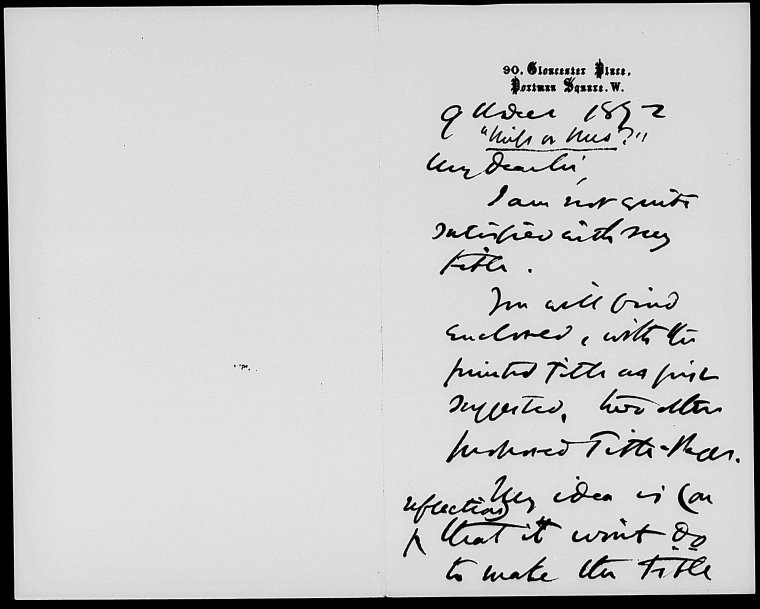 90, Gloucester Place,
Portman Square. W.
9 Decr 1872
"Miss or Mrs?"
My dear Sir,
I am not quite
satisfied with my
title.
You will find
enclosed, with the
printed Title as first
suggested, two other
proposed Title-Pages.
My idea is (on
reflection)
that it won't do
to make the Title